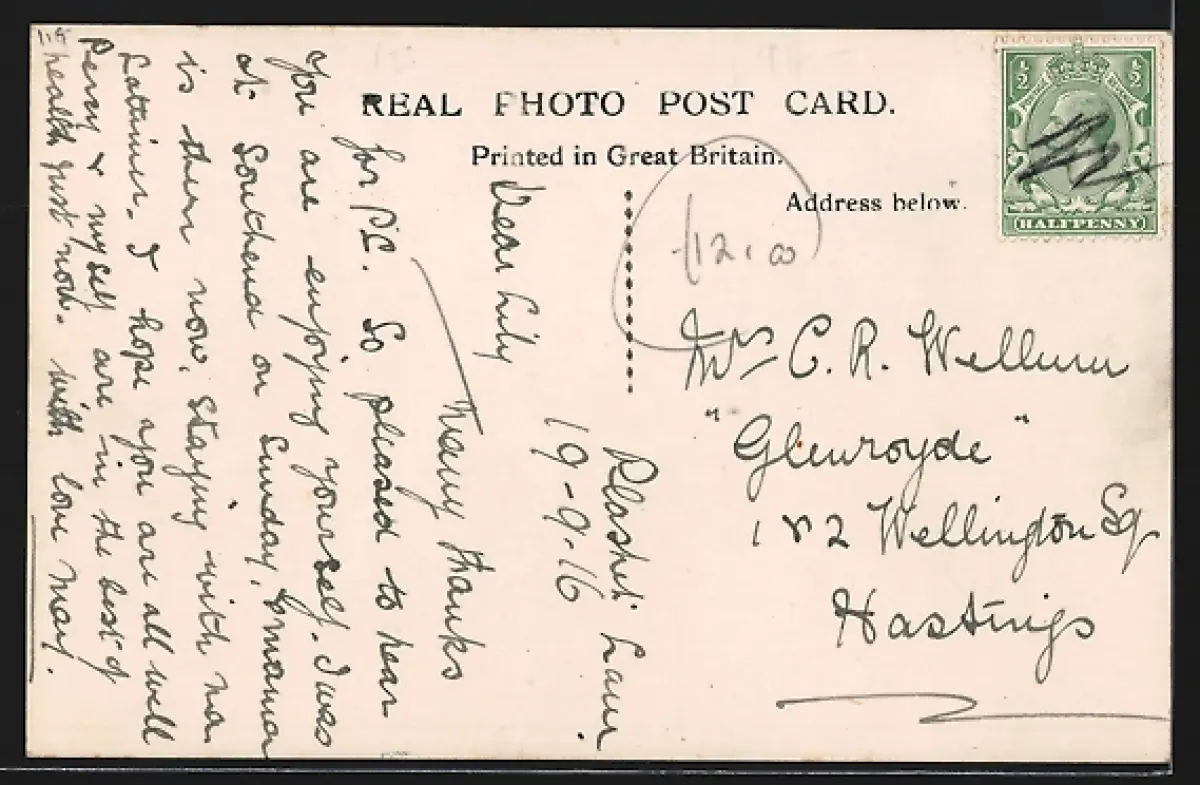 REAL PHOTO POST CARD.
Printed in Great Britain.
Address below.
1/2 1/2
HALFPENNY
12.00
Mrs C. R. Wellum
"Glenroyde"
182 Wellington Sq
Hastings
Plashet Lane.
19-9-16
Dear Lily
Many thanks
for P.C. So pleased to hear
you are enjoying yourself. I was
at Southend on Sunday,
is there now, staying with
I hope you are all well
Percy & myself are in the best of
health just now. with love May.